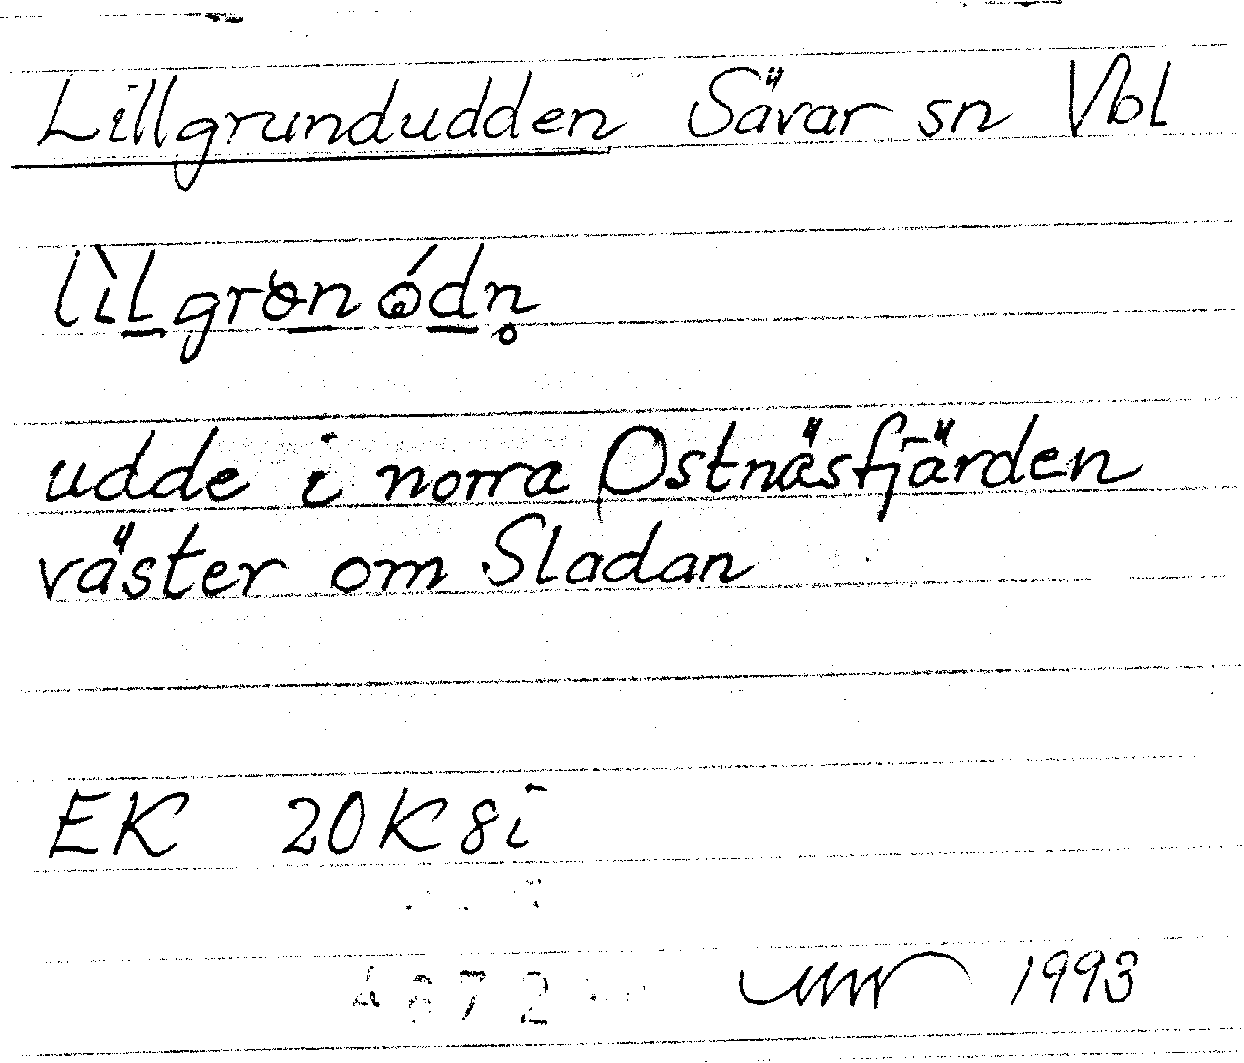 Lillgrundudden Sävar sn Vbl
udde i norra Ostnäsfjärden
väster om Sladan
EK 20K8i
1993